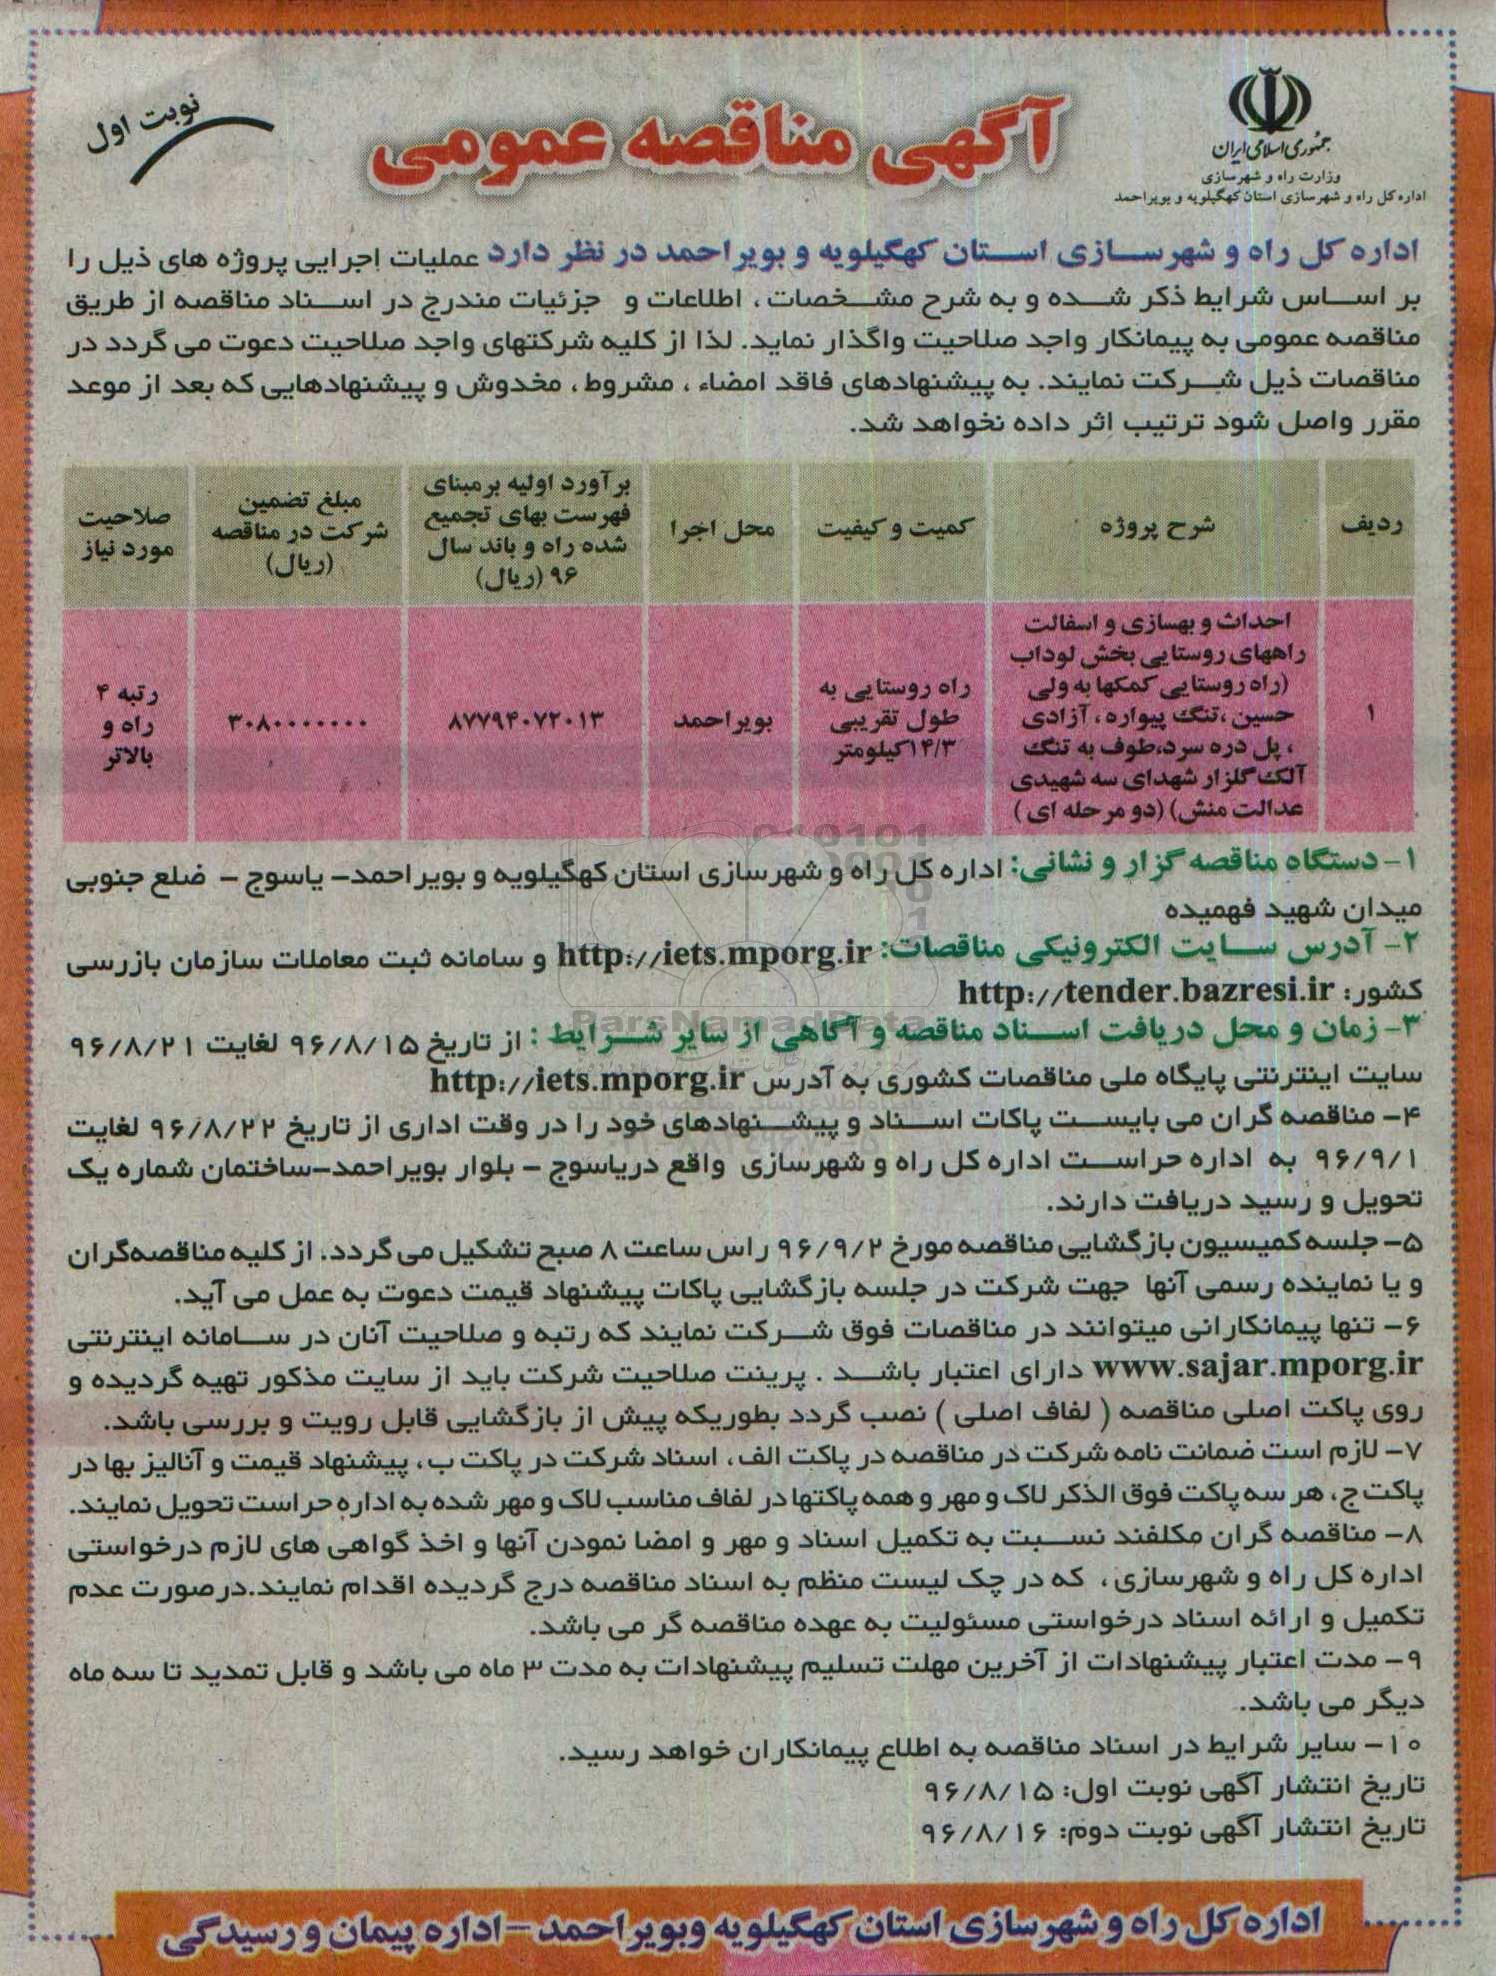 جمهوری اسلامی ایران
وزارت راه و شهرسازی
اداره کل راه و شهرسازی استان کهگیلویه و بویراحمد
آگهی مناقصه عمومی
نوبت اول
اداره کل راه و شهرسازی استان کهگیلویه و بویراحمد در نظر دارد عملیات اجرایی پروژه های ذیل را
بر اساس شرایط ذکر شده و به شرح مشخصات ، اطلاعات و جزئیات مندرج در اسناد مناقصه از طریق
مناقصه عمومی به پیمانکار واجد صلاحیت واگذار نماید. لذا از کلیه شرکتهای واجد صلاحیت دعوت می گردد در
مناقصات ذیل شرکت نمایند. به پیشنهادهای فاقد امضاء ، مشروط ، مخدوش و پیشنهادهایی که بعد از موعد
مقرر واصل شود ترتیب اثر داده نخواهد شد.
ردیف
شرح پروژه
کمیت و کیفیت
محل اجرا
برآورد اولیه برمبنای
فهرست بهای تجمیع
شده راه و باند سال
۹۶ (ریال)
مبلغ تضمین
شرکت در مناقصه
(ریال)
صلاحیت
مورد نیاز
۱
احداث و بهسازی و اسفالت
راههای روستایی بخش لوداب
(راه روستایی کمکها به ولی
حسین ،تنگ پیواره ، آزادی
، پل دره سرد،طوف به تنگ
آلک گلزار شهدای سه شهیدی
عدالت منش) (دو مرحله ای )
راه روستایی به
طول تقریبی
۱۴/۳کیلومتر
بویراحمد
۸۷۷۹۴۰۷۲۰۱۳
۳۰۸۰۰۰۰۰۰۰
رتبه ۴
راه و
بالاتر
۱- دستگاه مناقصه گزار و نشانی: اداره کل راه و شهرسازی استان کهگیلویه و بویراحمد- یاسوج - ضلع جنوبی
میدان شهید فهمیده
۲- آدرس سایت الکترونیکی مناقصات: http://iets.mporg.ir و سامانه ثبت معاملات سازمان بازرسی
کشور: http://tender.bazresi.ir
ParsNamadData
۳- زمان و محل دریافت اسناد مناقصه و آگاهی از سایر شرایط : از تاریخ ۹۶/۸/۱۵ لغایت ۹۶/۸/۲۱
سایت اینترنتی پایگاه ملی مناقصات کشوری به آدرس http://iets.mporg.ir
۴- مناقصه گران می بایست پاکات اسناد و پیشنهادهای خود را در وقت اداری از تاریخ ۹۶/۸/۲۲ لغایت
۹۶/۹/۱ به اداره حراست اداره کل راه و شهرسازی واقع دریاسوج - بلوار بویراحمد-ساختمان شماره یک
تحویل و رسید دریافت دارند.
۵- جلسه کمیسیون بازگشایی مناقصه مورخ ۹۶/۹/۲ راس ساعت ۸ صبح تشکیل می گردد. از کلیه مناقصه‌گران
و یا نماینده رسمی آنها جهت شرکت در جلسه بازگشایی پاکات پیشنهاد قیمت دعوت به عمل می آید.
۶- تنها پیمانکارانی میتوانند در مناقصات فوق شرکت نمایند که رتبه و صلاحیت آنان در سامانه اینترنتی
www.sajar.mporg.ir دارای اعتبار باشد . پرینت صلاحیت شرکت باید از سایت مذکور تهیه گردیده و
روی پاکت اصلی مناقصه ( لفاف اصلی ) نصب گردد بطوریکه پیش از بازگشایی قابل رویت و بررسی باشد.
۷- لازم است ضمانت نامه شرکت در مناقصه در پاکت الف ، اسناد شرکت در پاکت ب ، پیشنهاد قیمت و آنالیز بها در
پاکت ج ، هر سه پاکت فوق الذکر لاک و مهر و همه پاکتها در لفاف مناسب لاک و مهر شده به اداره حراست تحویل نمایند.
۸- مناقصه گران مکلفند نسبت به تکمیل اسناد و مهر و امضا نمودن آنها و اخذ گواهی های لازم درخواستی
اداره کل راه و شهرسازی ، که در چک لیست منظم به اسناد مناقصه درج گردیده اقدام نمایند.درصورت عدم
تکمیل و ارائه اسناد درخواستی مسئولیت به عهده مناقصه گر می باشد.
۹- مدت اعتبار پیشنهادات از آخرین مهلت تسلیم پیشنهادات به مدت ۳ ماه می باشد و قابل تمدید تا سه ماه
دیگر می باشد.
۱۰- سایر شرایط در اسناد مناقصه به اطلاع پیمانکاران خواهد رسید.
تاریخ انتشار آگهی نوبت اول: ۹۶/۸/۱۵
تاریخ انتشار آگهی نوبت دوم: ۹۶/۸/۱۶
اداره کل راه و شهرسازی استان کهگیلویه وبویراحمد -اداره پیمان و رسیدگی